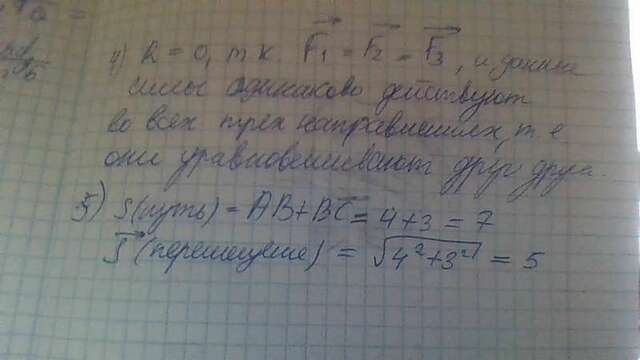 4) R = 0, т к. F₁ = F₂ = F₃, и данные
силы одинаково действуют
во всех трех направлениях, т е
они уравновешивают друг друга.
5) S(путь) = AB+BC = 4+3 = 7
S (перемещение) = √4²+3² = 5